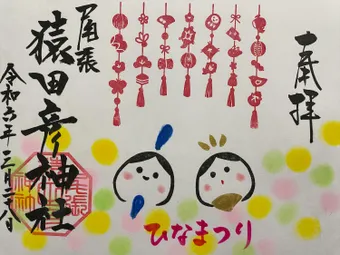 奉拝
尾張
猿田彦神社
令和六年三月二十八日
ひなまつり